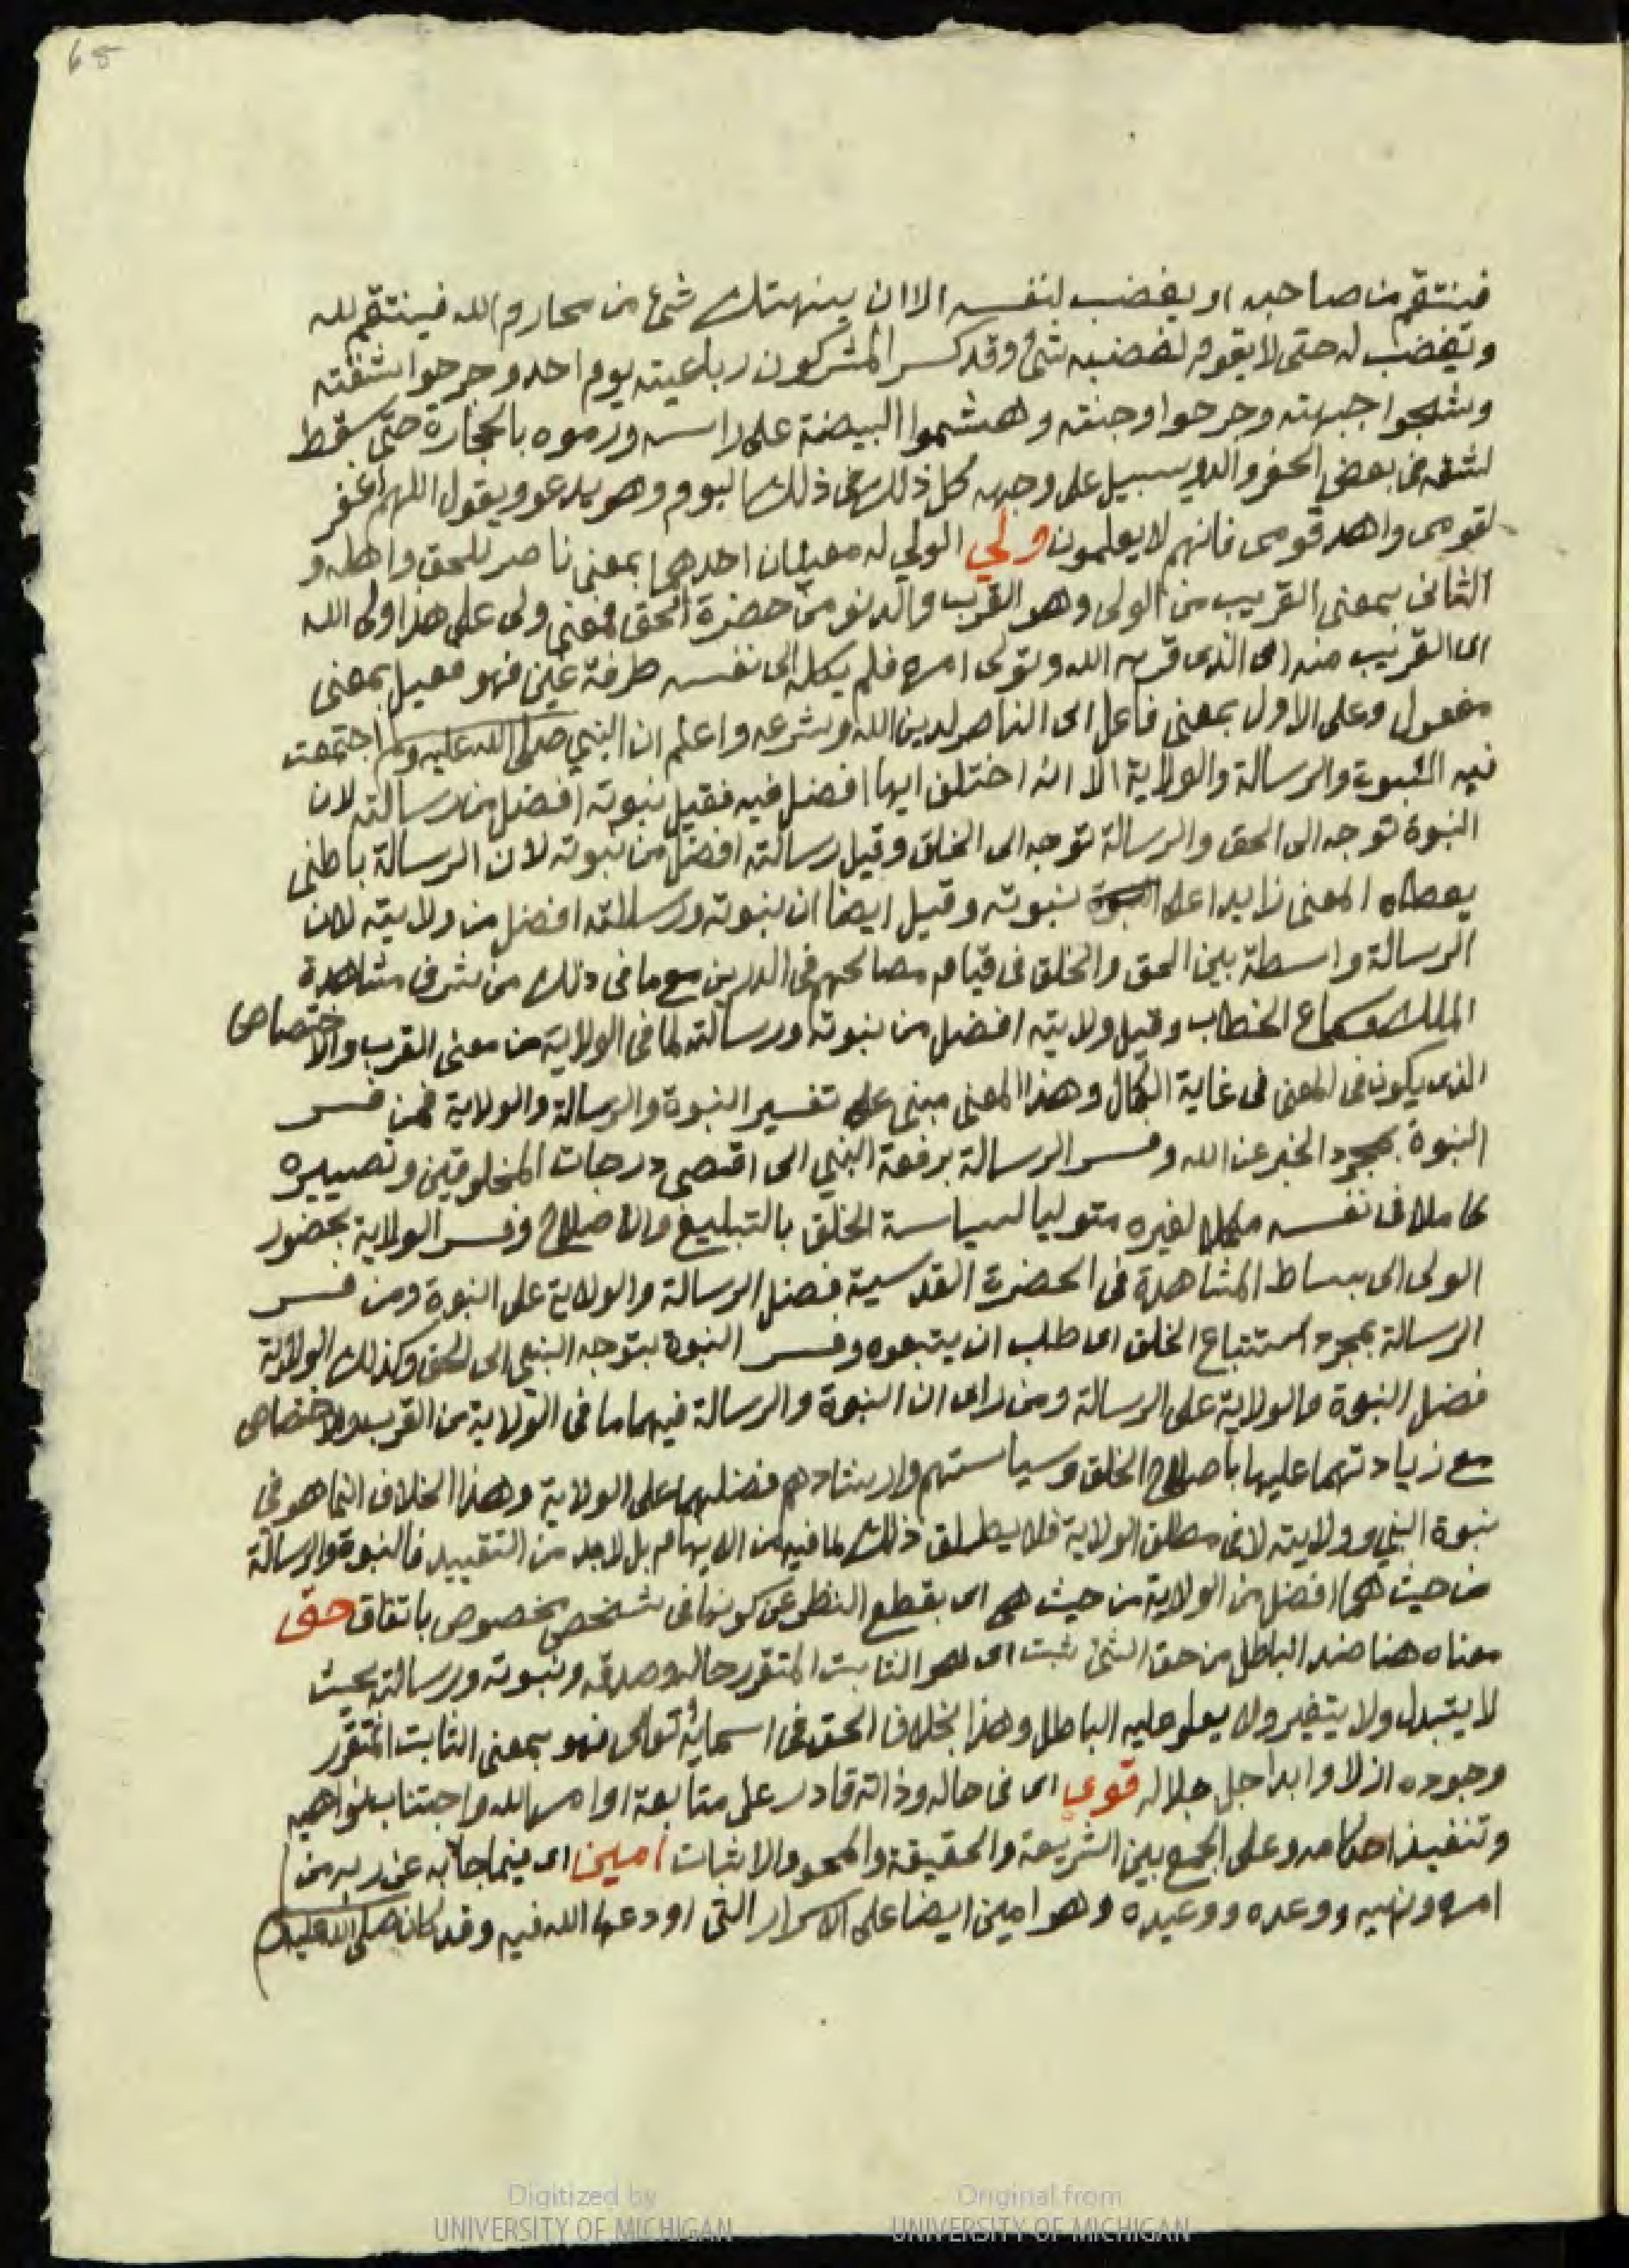 68
فينتقم من صاحبه او يغضب لنفسه الا ان ينهتك شئ من محارم الله فينتقم لله
ويغضب له حتى لا يقوم لغضبه شئ وقد كسر المشركون رباعيته يوم احد وجرحوا شفته
وشجوا جبهته وجرحوا وجنته وهشموا البيضة على راسه ورموه بالحجارة حتى سقط
لشقه فى بعض الحفر والدم يسيل على وجهه كل ذلك فى ذلك اليوم وهو يدعو ويقول اللهم اغفر
لقومى واهد قومى فانهم لا يعلمون ولي الولي له معنيان احدهما بمعنى ناصر للحق واهله و
الثانى بمعنى القريب من الولى وهو القرب والدنو من حضرة الحق فمعنى ولى على هذا ولى الله
اى القريب منه اى الذى قربه الله وتولى امره فلم يكله الى نفسه طرفة عين فهو فعيل بمعنى
مفعول وعلى الاول بمعنى فاعل اى الناصر لدين الله وشرعه واعلم ان النبي صلى الله عليه وسلم اجتمعت
فيه النبوة والرسالة والولاية الا انه اختلف ايها افضل فيه فقيل نبوته افضل من رسالته لان
النبوة توجه الى الحق والرسالة توجه الى الخلق وقيل رسالته افضل من نبوته لان الرسالة باطنى
يعطاه المعنى زايدا على نبوته وقيل ايضا ان نبوته ورسالته افضل من ولايته لان
الرسالة واسطة بين الحق والخلق فى قيام مصالحهم فى الدارين مع ما فى ذلك من شرف مشاهدة
الملك وسماع الخطاب وقيل ولايته افضل من نبوته ورسالته لما فى الولاية من معنى القرب والاختصاص
الذى يكون فى المعنى فى غاية الكمال وهذا المعنى مبنى على تفسير النبوة والرسالة والولاية فمن فسر
النبوة بمجرد الخبر عن الله وفسر الرسالة برفعة النبي الى اقصى درجات المخلوقين وتصييره
كاملا فى نفسه مكملا لغيره متوليا لسياسة الخلق بالتبليغ والاصلاح وفسر الولاية بحضور
الولى الى بساط المشاهدة فى الحضرة القدسية فضل الرسالة والولاية على النبوة ومن فسر
الرسالة بمجرد استتباع الخلق اى طلب ان يتبعوه وفسر النبوة بتوجه النبي الى الحق وكذلك الولاية
فضل النبوة والولاية على الرسالة ومن راى ان النبوة والرسالة فيهما ما فى الولاية من القرب والاختصاص
مع زيادتهما عليها باصلاح الخلق وسياستهم وارشادهم فضلهما على الولاية وهذا الخلاف انما هو فى
نبوة النبي وولايته لا فى مطلق الولاية فلا يطلق ذلك لما فيه من الايهام بل لا بد من التقييد فالنبوة والرسالة
من حيث هما افضل من الولاية من حيث هى اى بقطع النظر عن كونها فى شخص مخصوص باتفاق حق
معناه هنا ضد الباطل من حق الشئ ثبت اى هو الثابت المتقرر حاله وصدقه ونبوته ورسالته بحيث
لا يتبدل ولا يتغير ولا يعلو عليه الباطل وهذا بخلاف الحق فى اسمائه تعالى فهو بمعنى الثابت المتقرر
وجوده ازلا وابدا جل جلاله قوي اى فى حاله وذاته قادر على متابعة اوامر الله واجتناب نواهيه
وتنفيذ احكامه وعلى الجمع بين الشريعة والحقيقة والمحو والاثبات امين اى فيما جا به عن ربه من
امره ونهيه ووعده ووعيده وهو امين ايضا على الاسرار التى اودعها الله فيه وقد كان صلى الله عليه وسلم
Digitized by
UNIVERSITY OF MICHIGAN
Original from
UNIVERSITY OF MICHIGAN